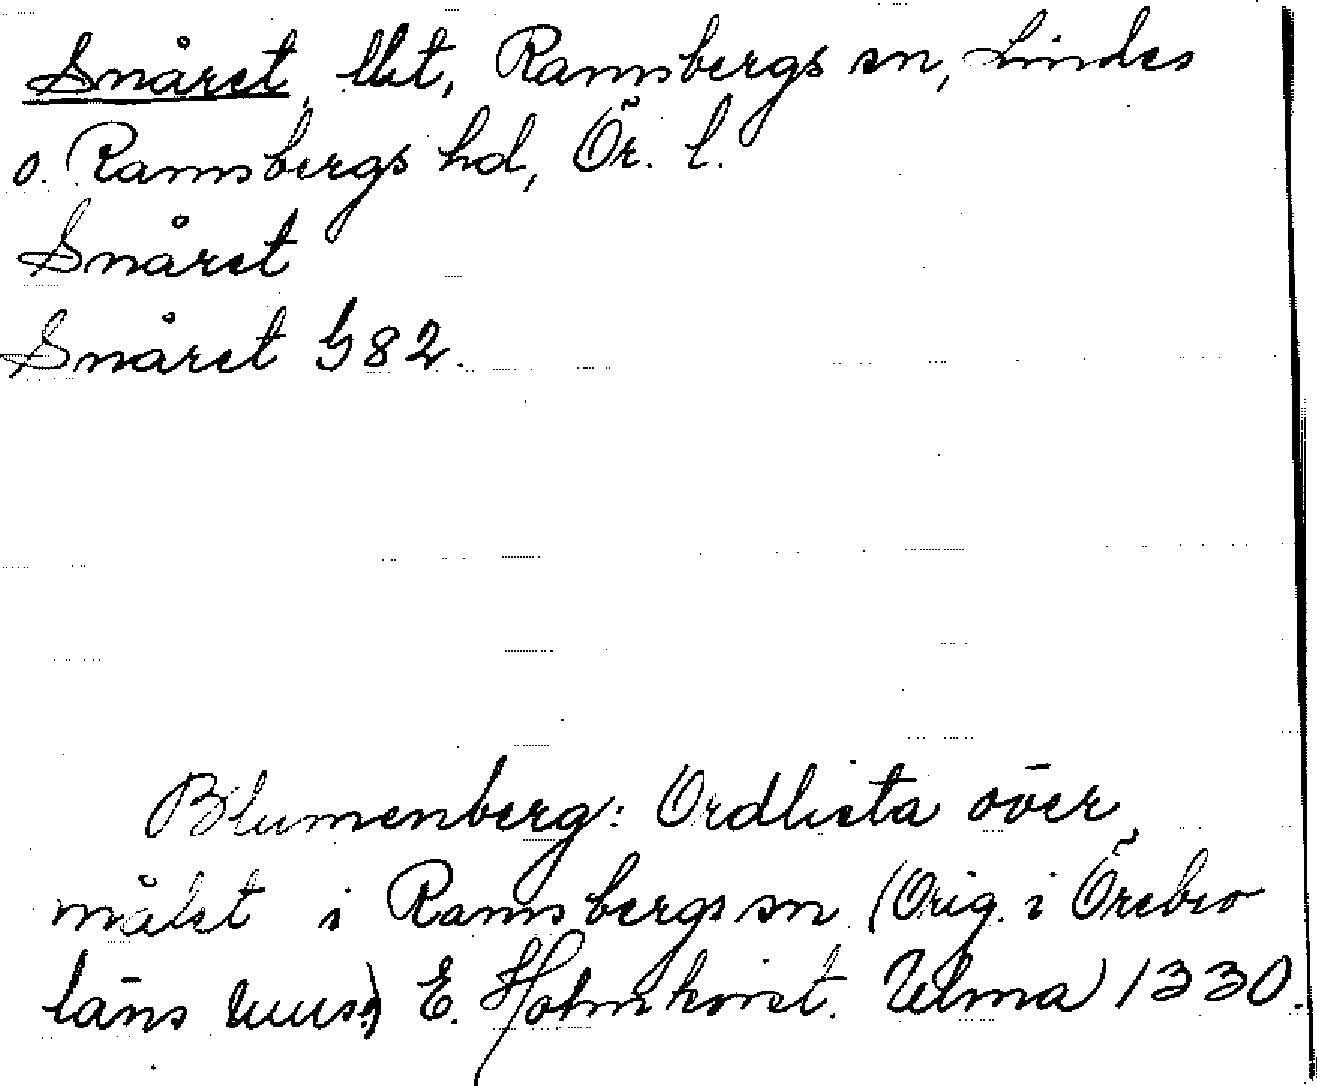 Snåret, llt, Ramsbergs sn, Lindes
o. Ramsbergs hd, Ör. l.
Snåret
Snåret G82.
Blumenberg: Ordlista över
målet i Ramsbergs sn (Orig. i Örebro
läns mus.) E. Holmkvist. Ulma 1330.